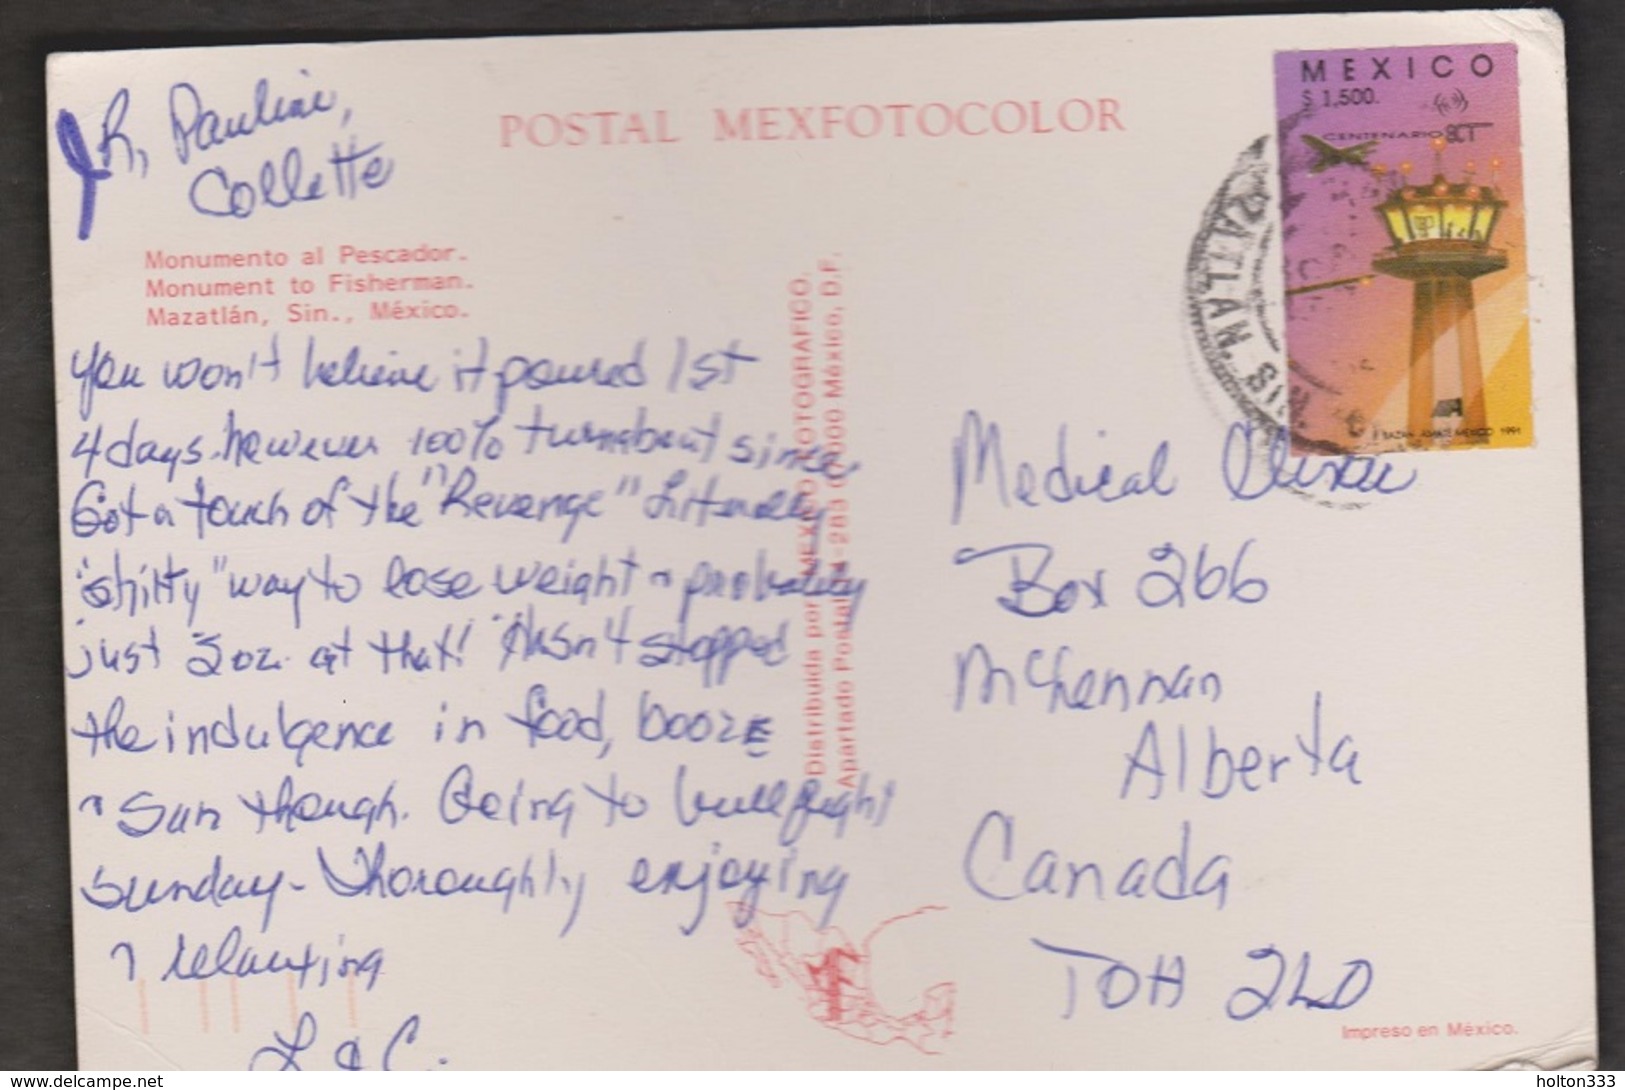 POSTAL MEXFOTOCOLOR
MEXICO
$ 1,500.
CENTENARIO SCT
MEXICO 1991
MAZATLAN, SIN.
R, Pauline,
Collette
Monumento al Pescador.
Monument to Fisherman.
Mazatlán, Sin., México.
You won't believe it poured 1st
4 days. however 100% turnabout since.
Got a touch of the "Revenge" Literally
"shitty" way to lose weight & probably
just 3 oz. at that! Hasn't stopped
the indulgence in food, booze
& sun though. Going to bullfight
Sunday - Thoroughly enjoying
& relaxing
L & C.
Distribuida por MEXICO FOTOGRAFICO.
Apartado Postal México, D.F.
Medical Clinic
Box 266
McLennan
Alberta
Canada
T0H 2L0
Impreso en México.
delcampe.net
holton333